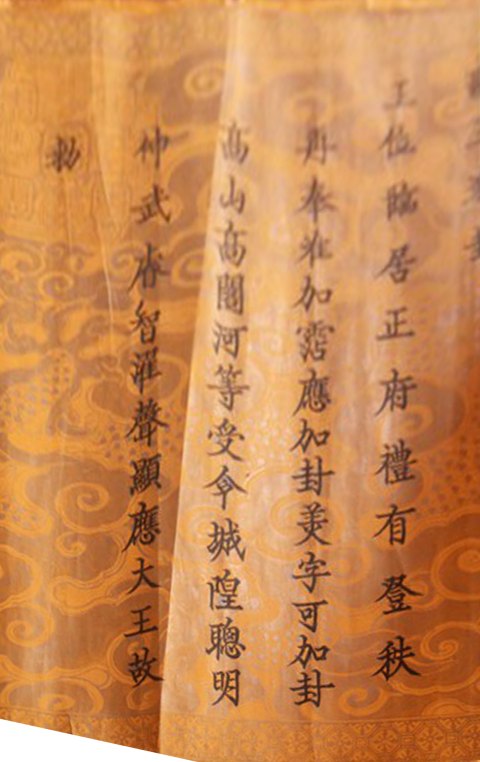 王位臨居正府禮有登秩
再奉准加霑應加封美字可加封
高山高閣河等受令城隍聰明
神武睿智濯聲顯應大王故
勑